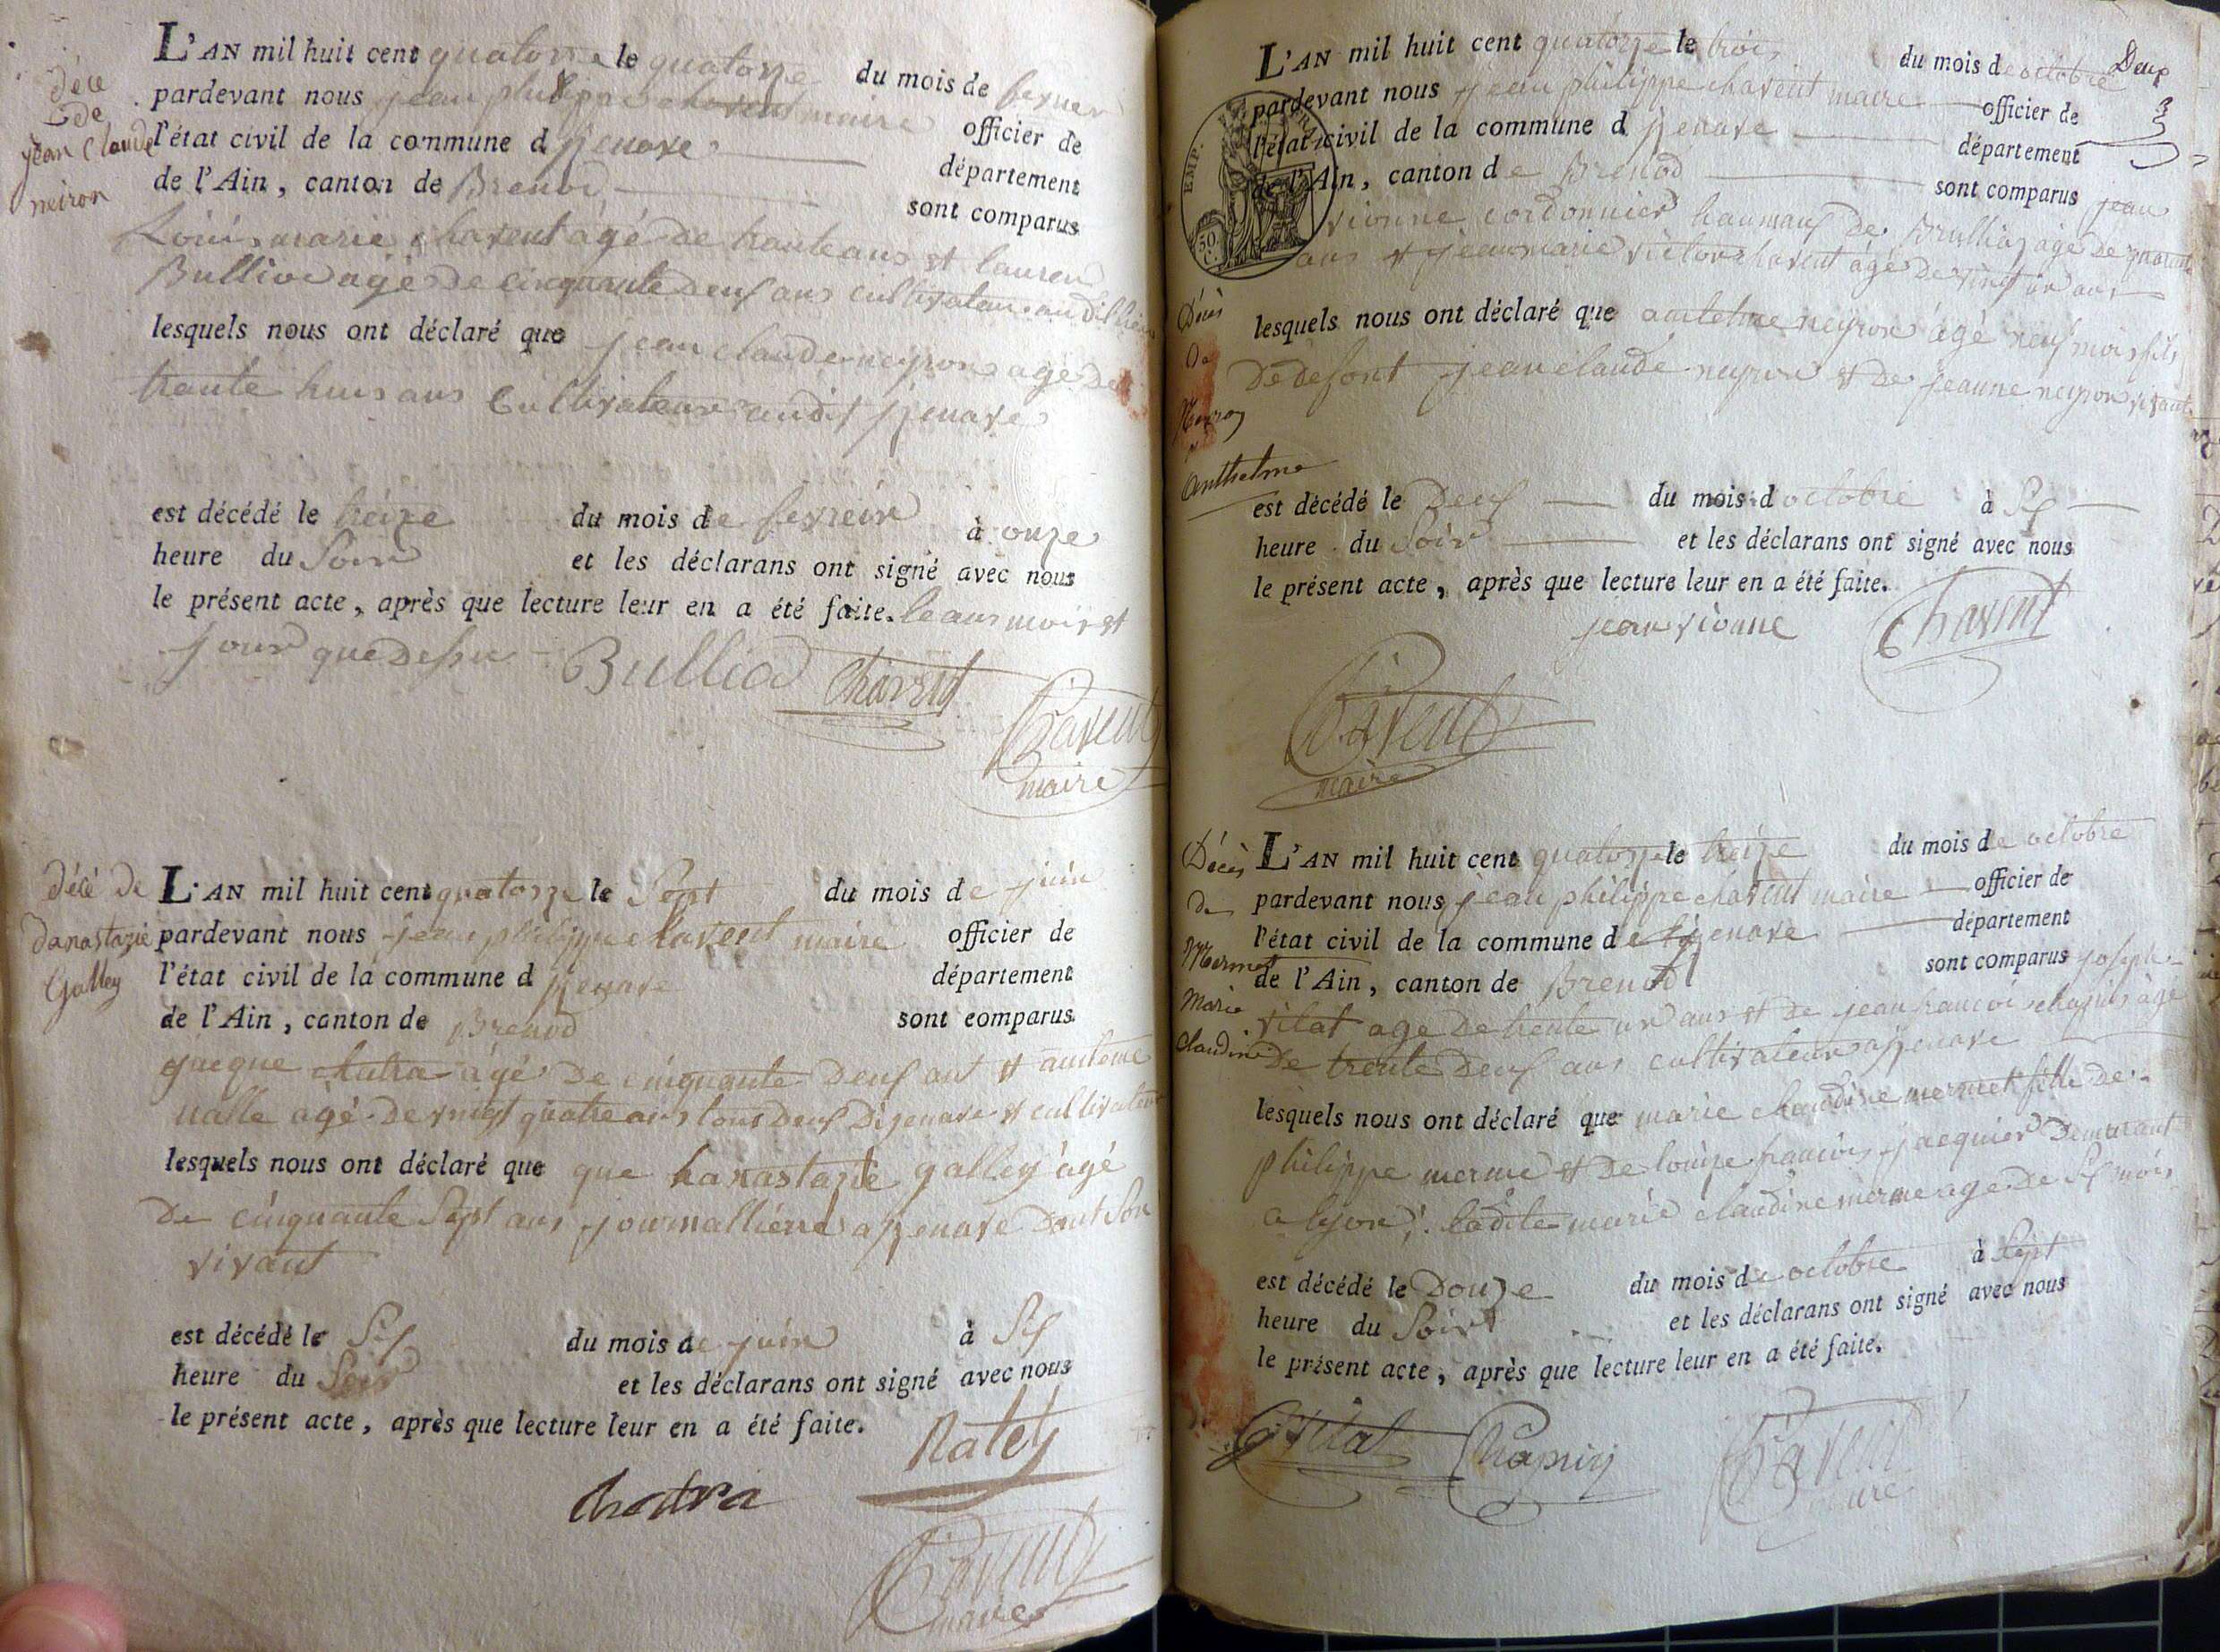 L'AN mil huit cent quatorze le quatorze du mois de fevrier
pardevant nous jean philippe chavent maire officier de
l'état civil de la commune d izenave département
de l'Ain, canton de Brenod sont comparus
Louis marie chavent âgé de trante ans et lauren
Bulliod agé de cinquante deux ans cultivateur audit lieu
lesquels nous ont déclaré que jean claude neyron agé de
trante huis ans Cultivateur audit izenave
est décédé le treize du mois de fevreir à onze
heure du Soir et les déclarans ont signé avec nous
le présent acte, après que lecture leur en a été faite. le ans mois et
jour que desu
Bulliod Chavent
Chavent
maire
décé
de
jean Claude
neiron
L'AN mil huit cent quatorze le Sept du mois de juin
pardevant nous jean philippe chavent maire officier de
l'état civil de la commune d izenave département
de l'Ain, canton de Brenod sont comparus
jacque chatra âgé de cinquante deux ant et
nalle agé de vingt quatre ans tous deux dizenave et cultivateur
lesquels nous ont déclaré que que hanastazie galley âgé
de cinquante Sept ans journallierre a izenave dant Son
vivant
est décédé le Six du mois de juin à Six
heure du Soir et les déclarans ont signé avec nous
le présent acte, après que lecture leur en a été faite.
Nalet
Chatra
Chavent
maire
décé de
danastazie
Galley
Deux
L'AN mil huit cent quatorze le trois du mois de octobre
pardevant nous jean philippe chavent maire officier de
l'état civil de la commune d izenave département
de l'Ain, canton de Brenod sont comparus jean
vionne cordonnier de Brulliaz agé de quarante
ans et jean marie victor chavent âgé de vingt un ans
lesquels nous ont déclaré que antelme neyron âgé neuf mois fils
de defont jean claude neyron et de jeanne neyron vivant
est décédé le Deux du mois d octobre à Six
heure du Soir et les déclarans ont signé avec nous
le présent acte, après que lecture leur en a été faite.
jean vionne Chavent
Chavent
maire
EMP.
50 C.
Décès
De
Neyron
Anthelme
L'AN mil huit cent quatorze le treize du mois de octobre
pardevant nous jean philippe chavent maire officier de
l'état civil de la commune de izenave département
de l'Ain, canton de Brenod sont comparus joseph
vilat age de trente un ans et de jean francois chapuis âgé
De trente deux ans cultivateur a izenave
lesquels nous ont déclaré que marie claudine mermet fille de
philippe merme et de louize francois jacquier demurant
a lyon; ladite marie claudine merme age de Six mois
est décédé le Douze du mois de octobre à Sept
heure du Soir et les déclarans ont signé avec nous
le présent acte, après que lecture leur en a été faite.
Vilat Chapuis Chavent
maire
Décès
De
Mermet
Marie
Claudine